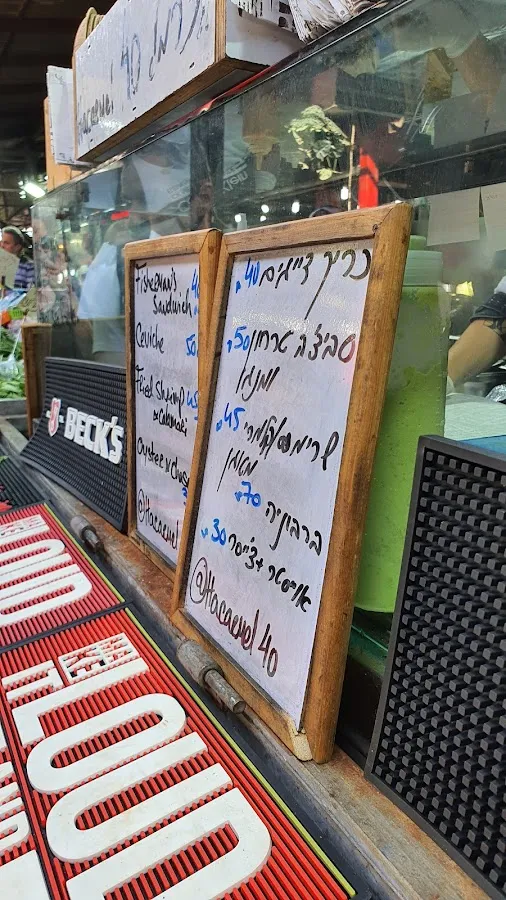 הכרמל 40
Hacarmel 40
Fisherman's
Sandwich
Ceviche 50
Fried Shrimp 45
& Calamari
Oyster & Chaser
@Hacarmel
כריך דייגים 40
סביצ'ה טרחון 50
ומנגו
שרימפס/קלמרי 45
מטוגן
ברבוניה 70
אויסטר + צ'ייסר 30
@Hacarmel 40
BECK'S